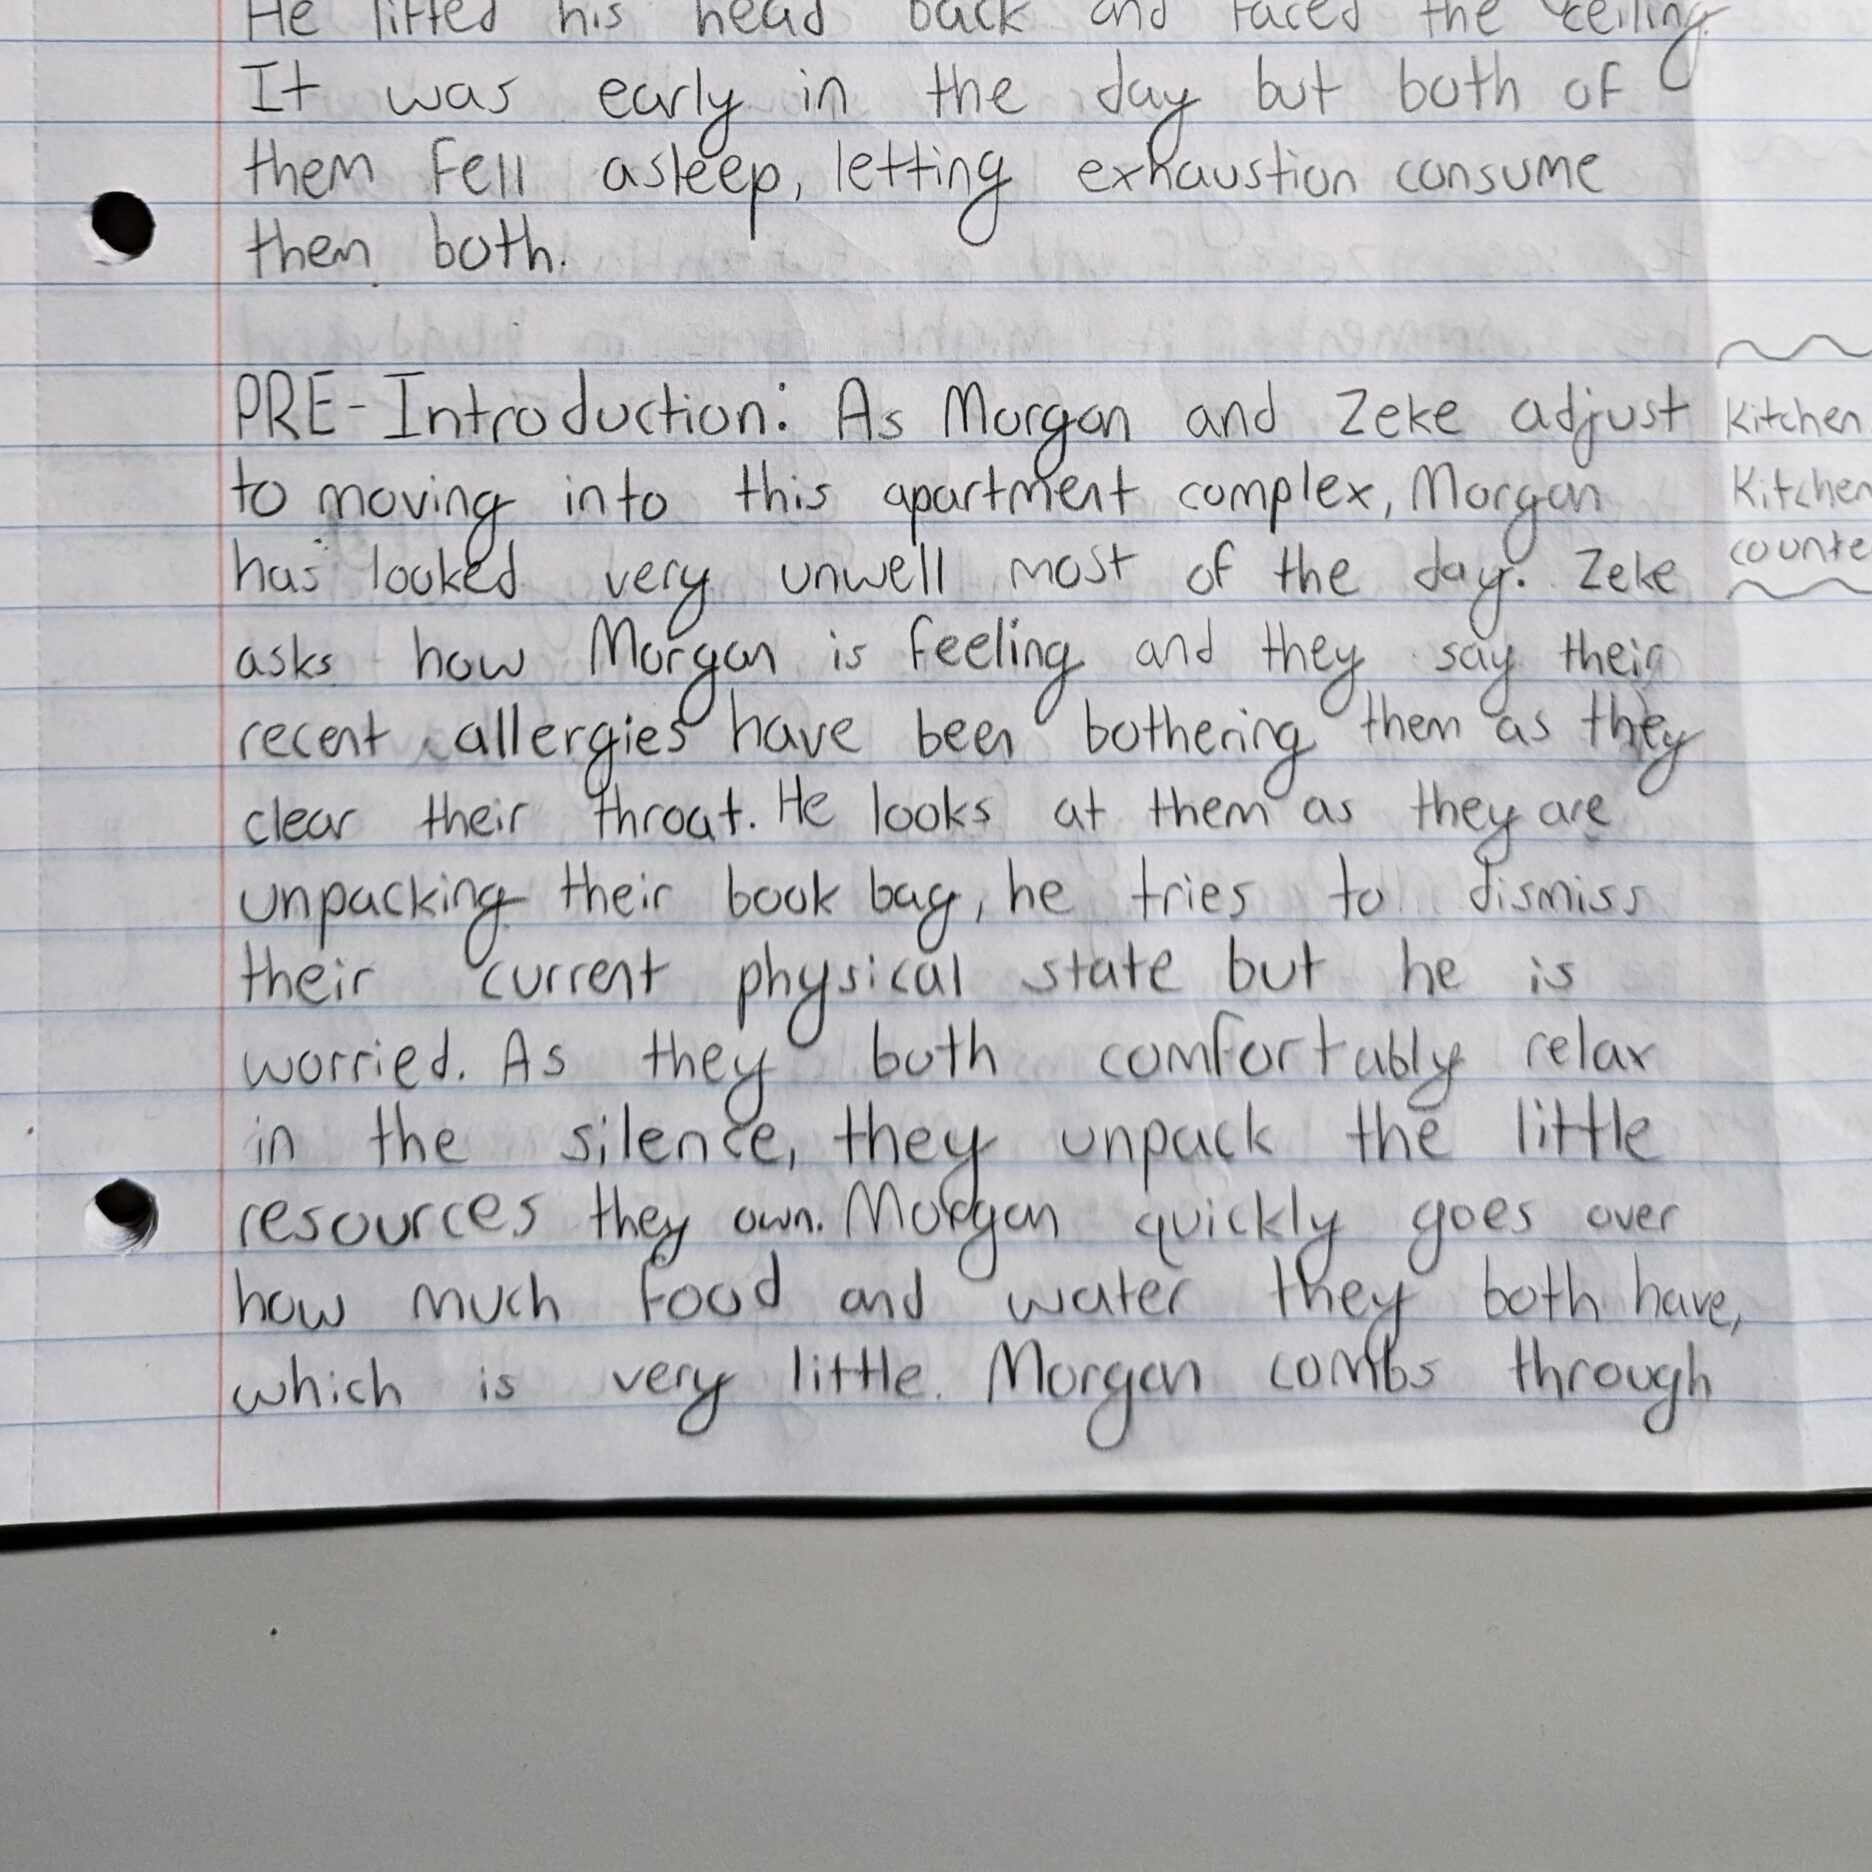 He lifted his head back and faced the ceiling.
It was early in the day but both of
them fell asleep, letting exhaustion consume
them both.
PRE-Introduction: As Morgan and Zeke adjust
to moving into this apartment complex, Morgan
has looked very unwell most of the day. Zeke
asks how Morgan is feeling and they say their
recent allergies have been bothering them as they
clear their throat. He looks at them as they are
unpacking their book bag, he tries to dismiss
their current physical state but he is
worried. As they both comfortably relax
in the silence, they unpack the little
resources they own. Morgan quickly goes over
how much food and water they both have,
which is very little. Morgan combs through
Kitchen
Kitchen
counte